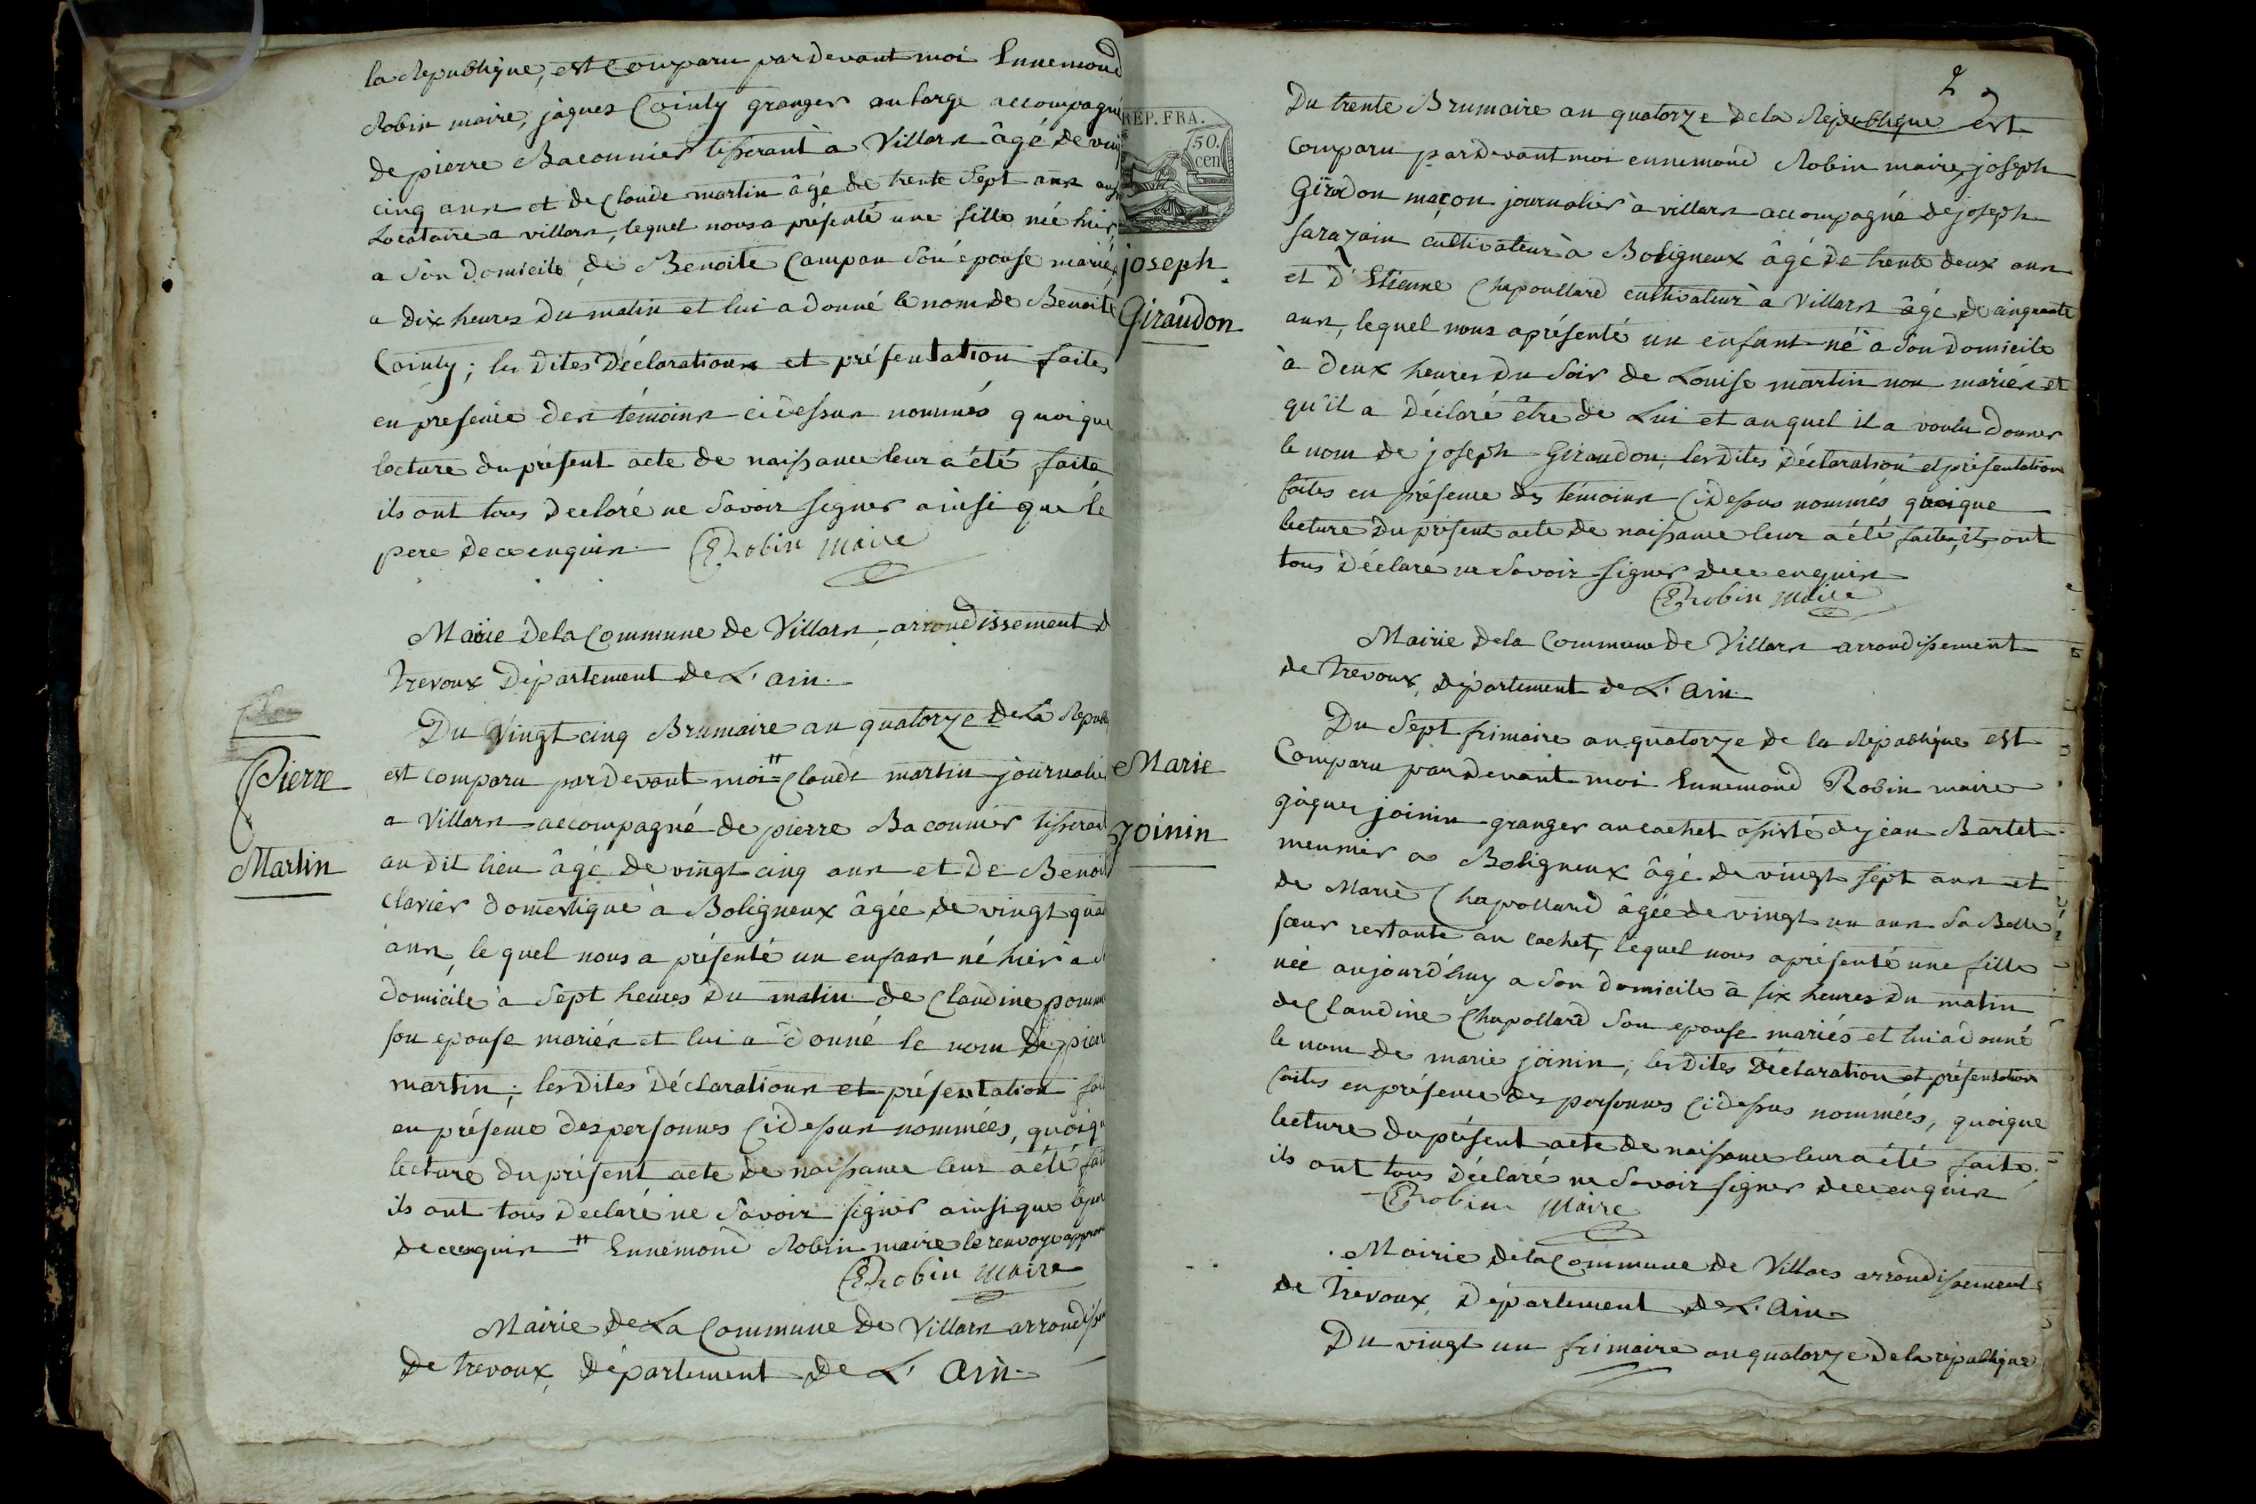 la Republique, est Comparu pardevant moi Ennemond
Robin maire, jaques Cointy granger au large accompagné
de pierre Baconnier tisserant à Villars âgé de vingt
cinq ans et de Claude martin âgé de trente Sept ans
Locataire a villars, lequel nous a présenté une fille née hier
a Son domicile de Benoite Campan Son épouse mariés
a dix heures du matin et lui a donné le nom de Benoite
Cointy; les dites Déclarations et présentation faites
en presence des témoins cidessus nommés quoique
lecture du présent acte de naissance leur a été faite
ils ont tous declaré ne Savoir signer ainsi que le
pere de ce enquis ERobin Maire
Mairie de la Commune de Villars arrondissement d
Trevoux Département de L'ain.
Pierre
Martin
Du Vingt cinq Brumaire an quatorze de La Republ
est comparu pardevant moi # Claude martin journalie
a Villars accompagné de pierre Baconnier tisserant
au dit lieu âgé de vingt cinq ans et de Benoit
Clavier domestique à Boligneux âgée de vingt quat
ans, le quel nous a présenté un enfans né hier à
domicile à Sept heures du matin de Claudine pomm
son epouse mariés et lui a donné le nom de pierr
martin; les dites Déclarations et présentation fai
en présence des personnes Cidessus nommées, quoiqu
lecture du présent acte de naissance leur a été fait
ils ont tous declaré ne Savoir signer ainsi que le per
de ce enquis # Ennemond Robin maire le renvoye approu
ERobin Maire
Mairie de La Commune de Villars arrondisse
de Trevoux, Département de L'Ain.
2
REP. FRA.
50.
cen
joseph
Giraudon
Du trente Brumaire an quatorze de la Republique est
Comparu pardevant moi ennemond Robin maire, joseph
Girodon maçon journalier à villars accompagné de joseph
Sarazain cultivateur à Boligneux âgé de trente deux ans
et d'Etienne Chapoullard cultivateur à Villars âgé de cinquante
ans, lequel nous a présenté un enfant né à Son domicile
à deux heures du Soir de Louise martin non mariés et
qu'il a Déclaré être de Lui et auquel il a voulu donner
le nom de joseph Giraudon; les dites déclaration et présentation
faites en présence des témoins Cidessus nommés, quoique
lecture du présent acte de naissance leur a été faite, ils ont
tous Déclaré ne Savoir signer de ce enquis
ERobin Maire
Mairie de la Commune de Villars arrondissement
de Trevoux, département de L'Ain.
Marie
Joinin
Du Sept frimaire an quatorze de la République est
Comparu pardevant moi Ennemond Robin maire
jaques joinin granger au cachet assisté de jean Bartet
meunier a Boligneux âgé de vingt sept ans et
de Marie Chapollard âgée de vingt un ans Sa Belle
sœur restante au Cachet, lequel nous a présenté une fille
née aujourd'huy a Son domicile à six heures du matin
de Claudine Chapollard Son epouse mariés et lui a donné
le nom de marie joinin; les dites Déclaration et présentation
faites en présence des personnes Cidessus nommées, quoique
lecture du présent acte de naissance leur a été faite,
ils ont tous Déclaré ne Savoir signer de ce enquis
ERobin Maire
Mairie de la Commune de Villars arrondissement
de Trevoux, Département de L'Ain
Du vingt un frimaire an quatorze de la république